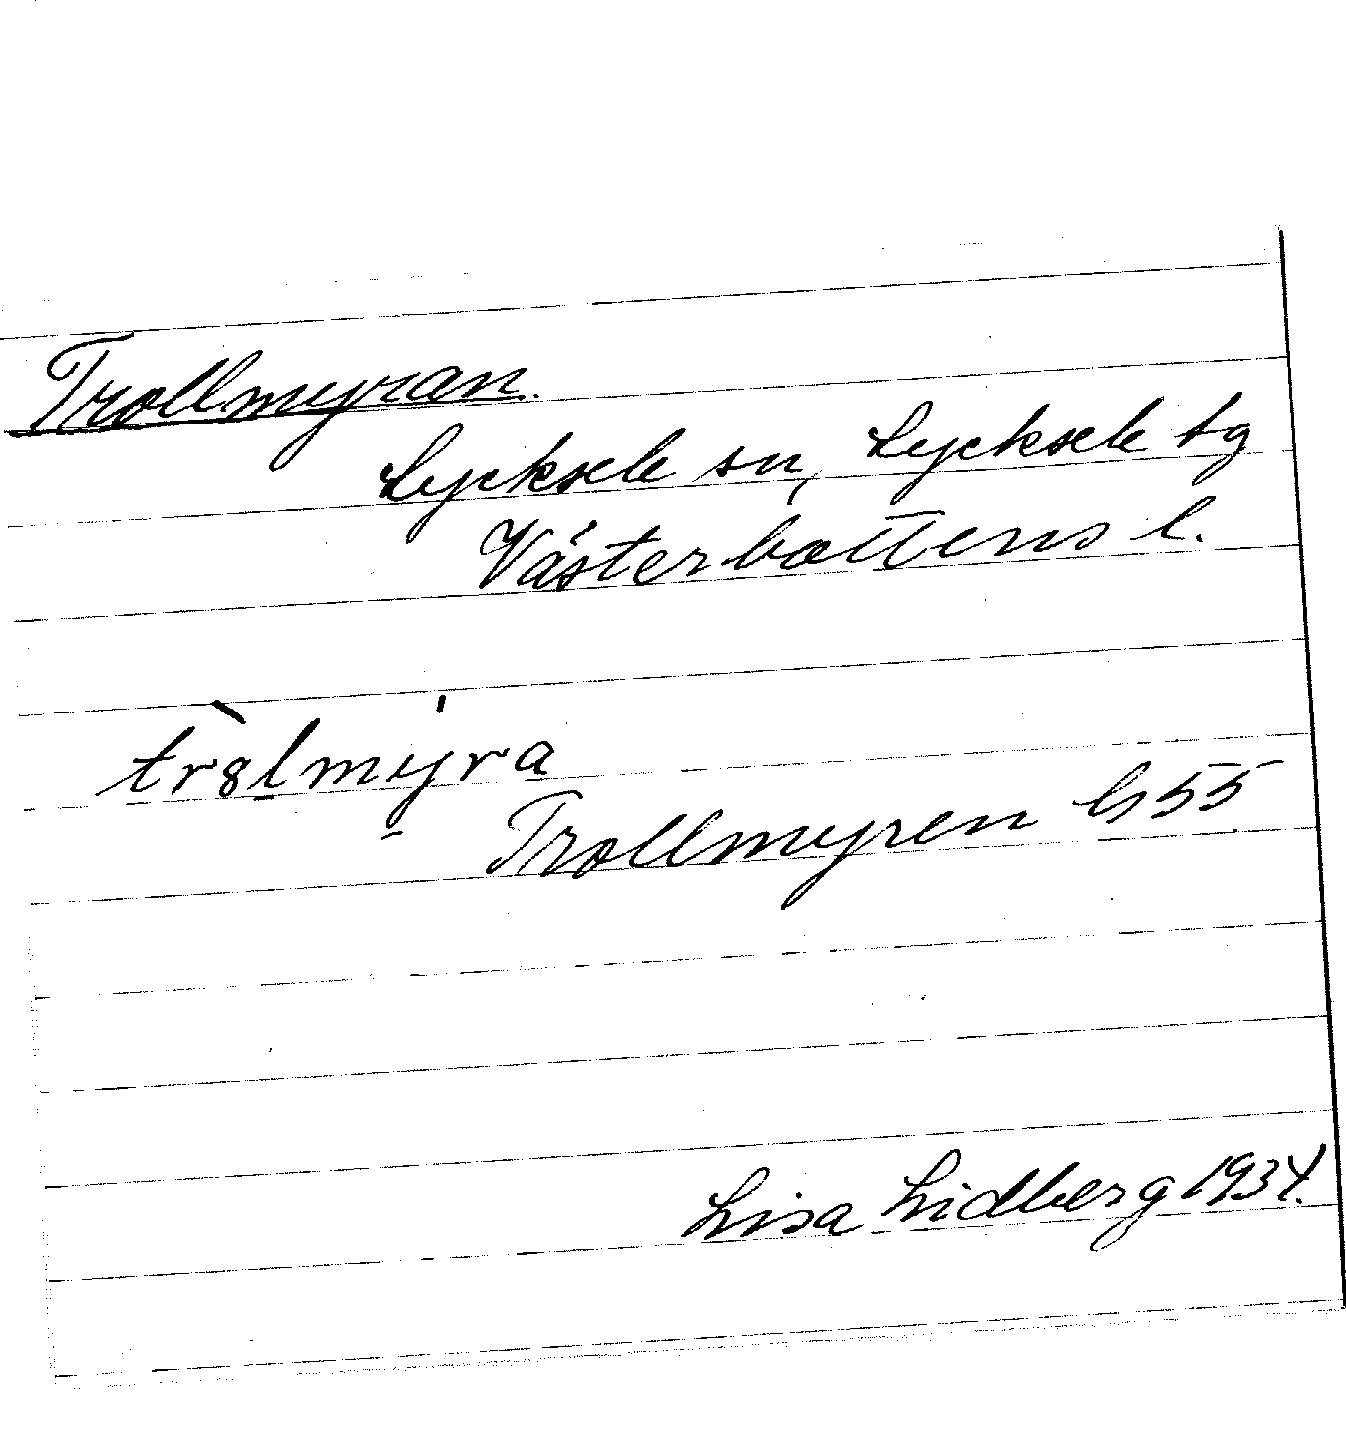 Trollmyran.
Lycksele sn, Lycksele tg
Västerbottens l.
tr8lmyra
Trollmyren G 55
Lisa Lidberg 1934.